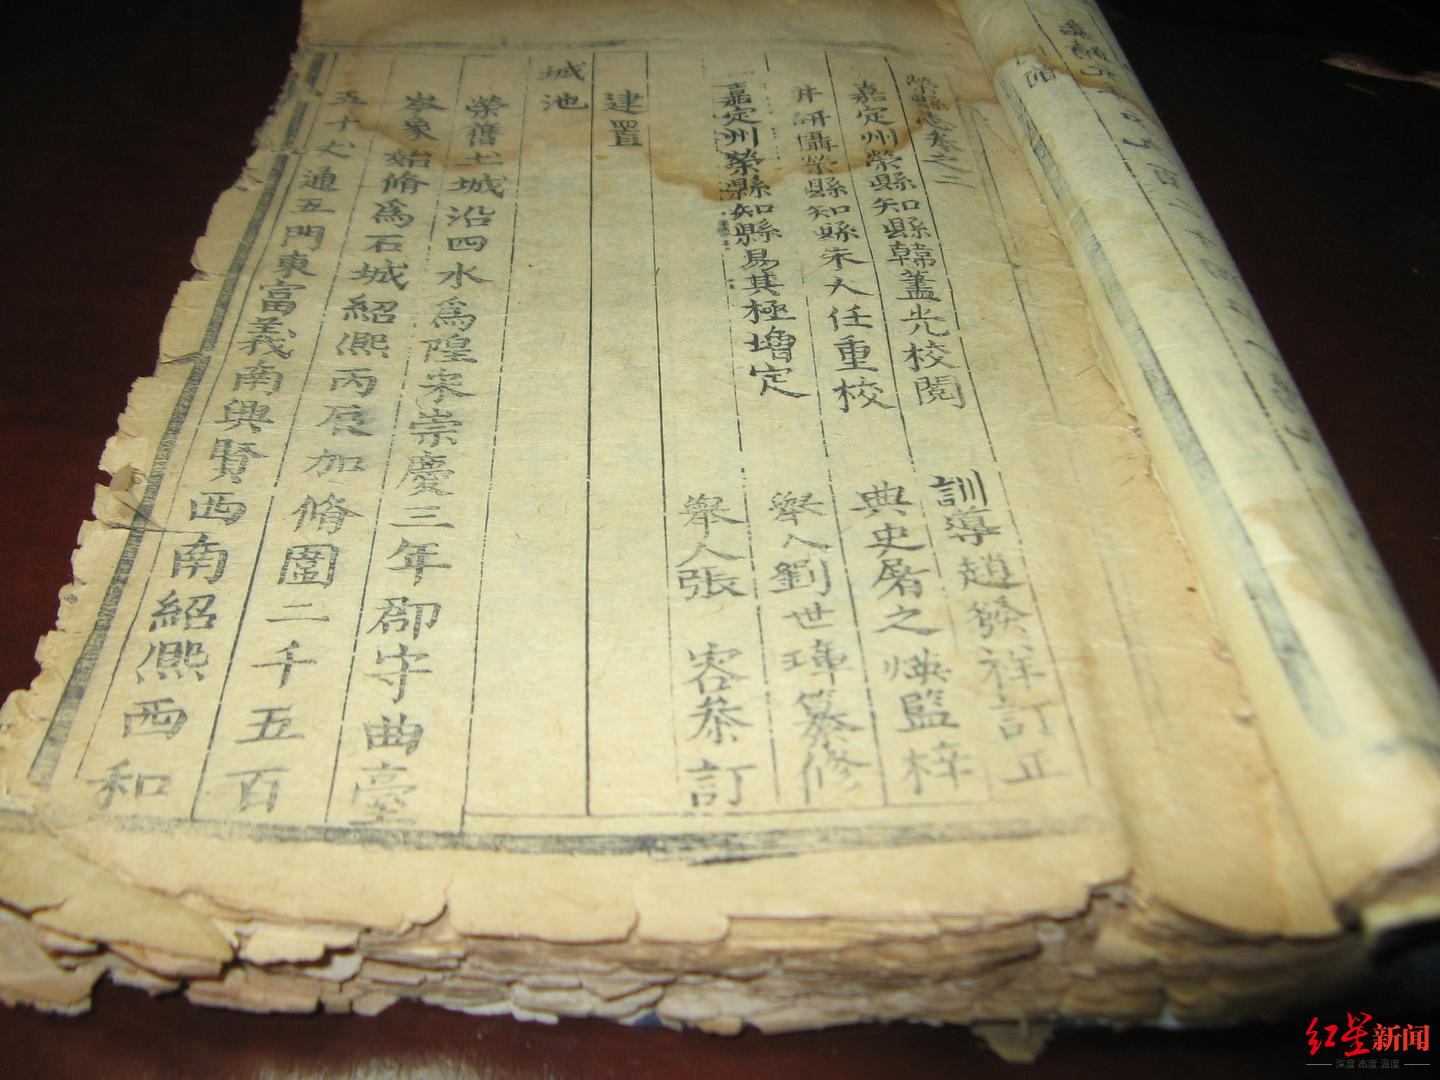 榮縣志卷之二
嘉定州榮縣知縣韓藎光校閱 訓導趙發祥訂正
井研攝榮縣知縣朱大任重校 典史屠之煐監梓
嘉定州榮縣知縣易其極增定 舉人劉世瑋纂修
舉人張 容恭訂
建置
城池
榮舊土城沿四水為隍宋崇慶三年郡守曲臺
岑象始脩為石城紹熙丙辰加脩圍二千五百
五十丈通五門東富義南興賢西南紹熙西和
红星新闻
深度 态度 温度